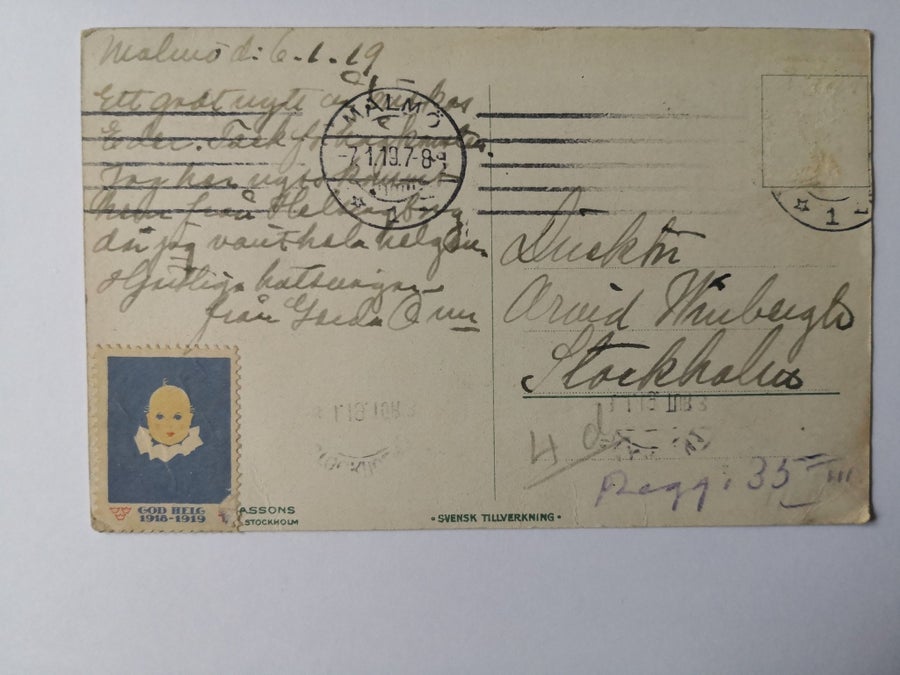 Malmö d: 6.1.19
Ett godt nytt år önskas
Eder. Tack för
Jag har nyss kommit
hem från Helsingborg
där jag varit hela helgen.
Hjertliga hälsningar
från Gerda
MALMÖ
-7.1.19.7-8
1
1
Direktör
Arvid Winbergh
Stockholm
4 d
Regg. 35
GOD HELG
1918-1919
ASSONS
STOCKHOLM
• SVENSK TILLVERKNING •